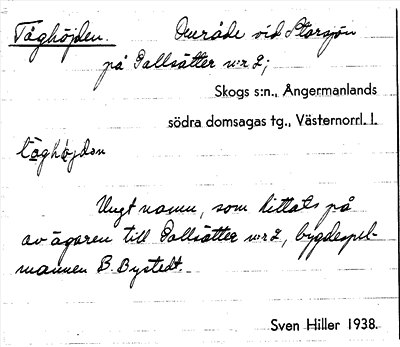 Tåghöjden. Område vid Storsjön
på Pallsätter nr 2;
Skogs s:n., Ångermanlands
södra domsagas tg., Västernorrl. l.
tåghöjdən
Ungt namn, som hittats på
av ägaren till Pallsätter nr 2, bygdespel-
mannen B. Bystedt.
Sven Hiller 1938.